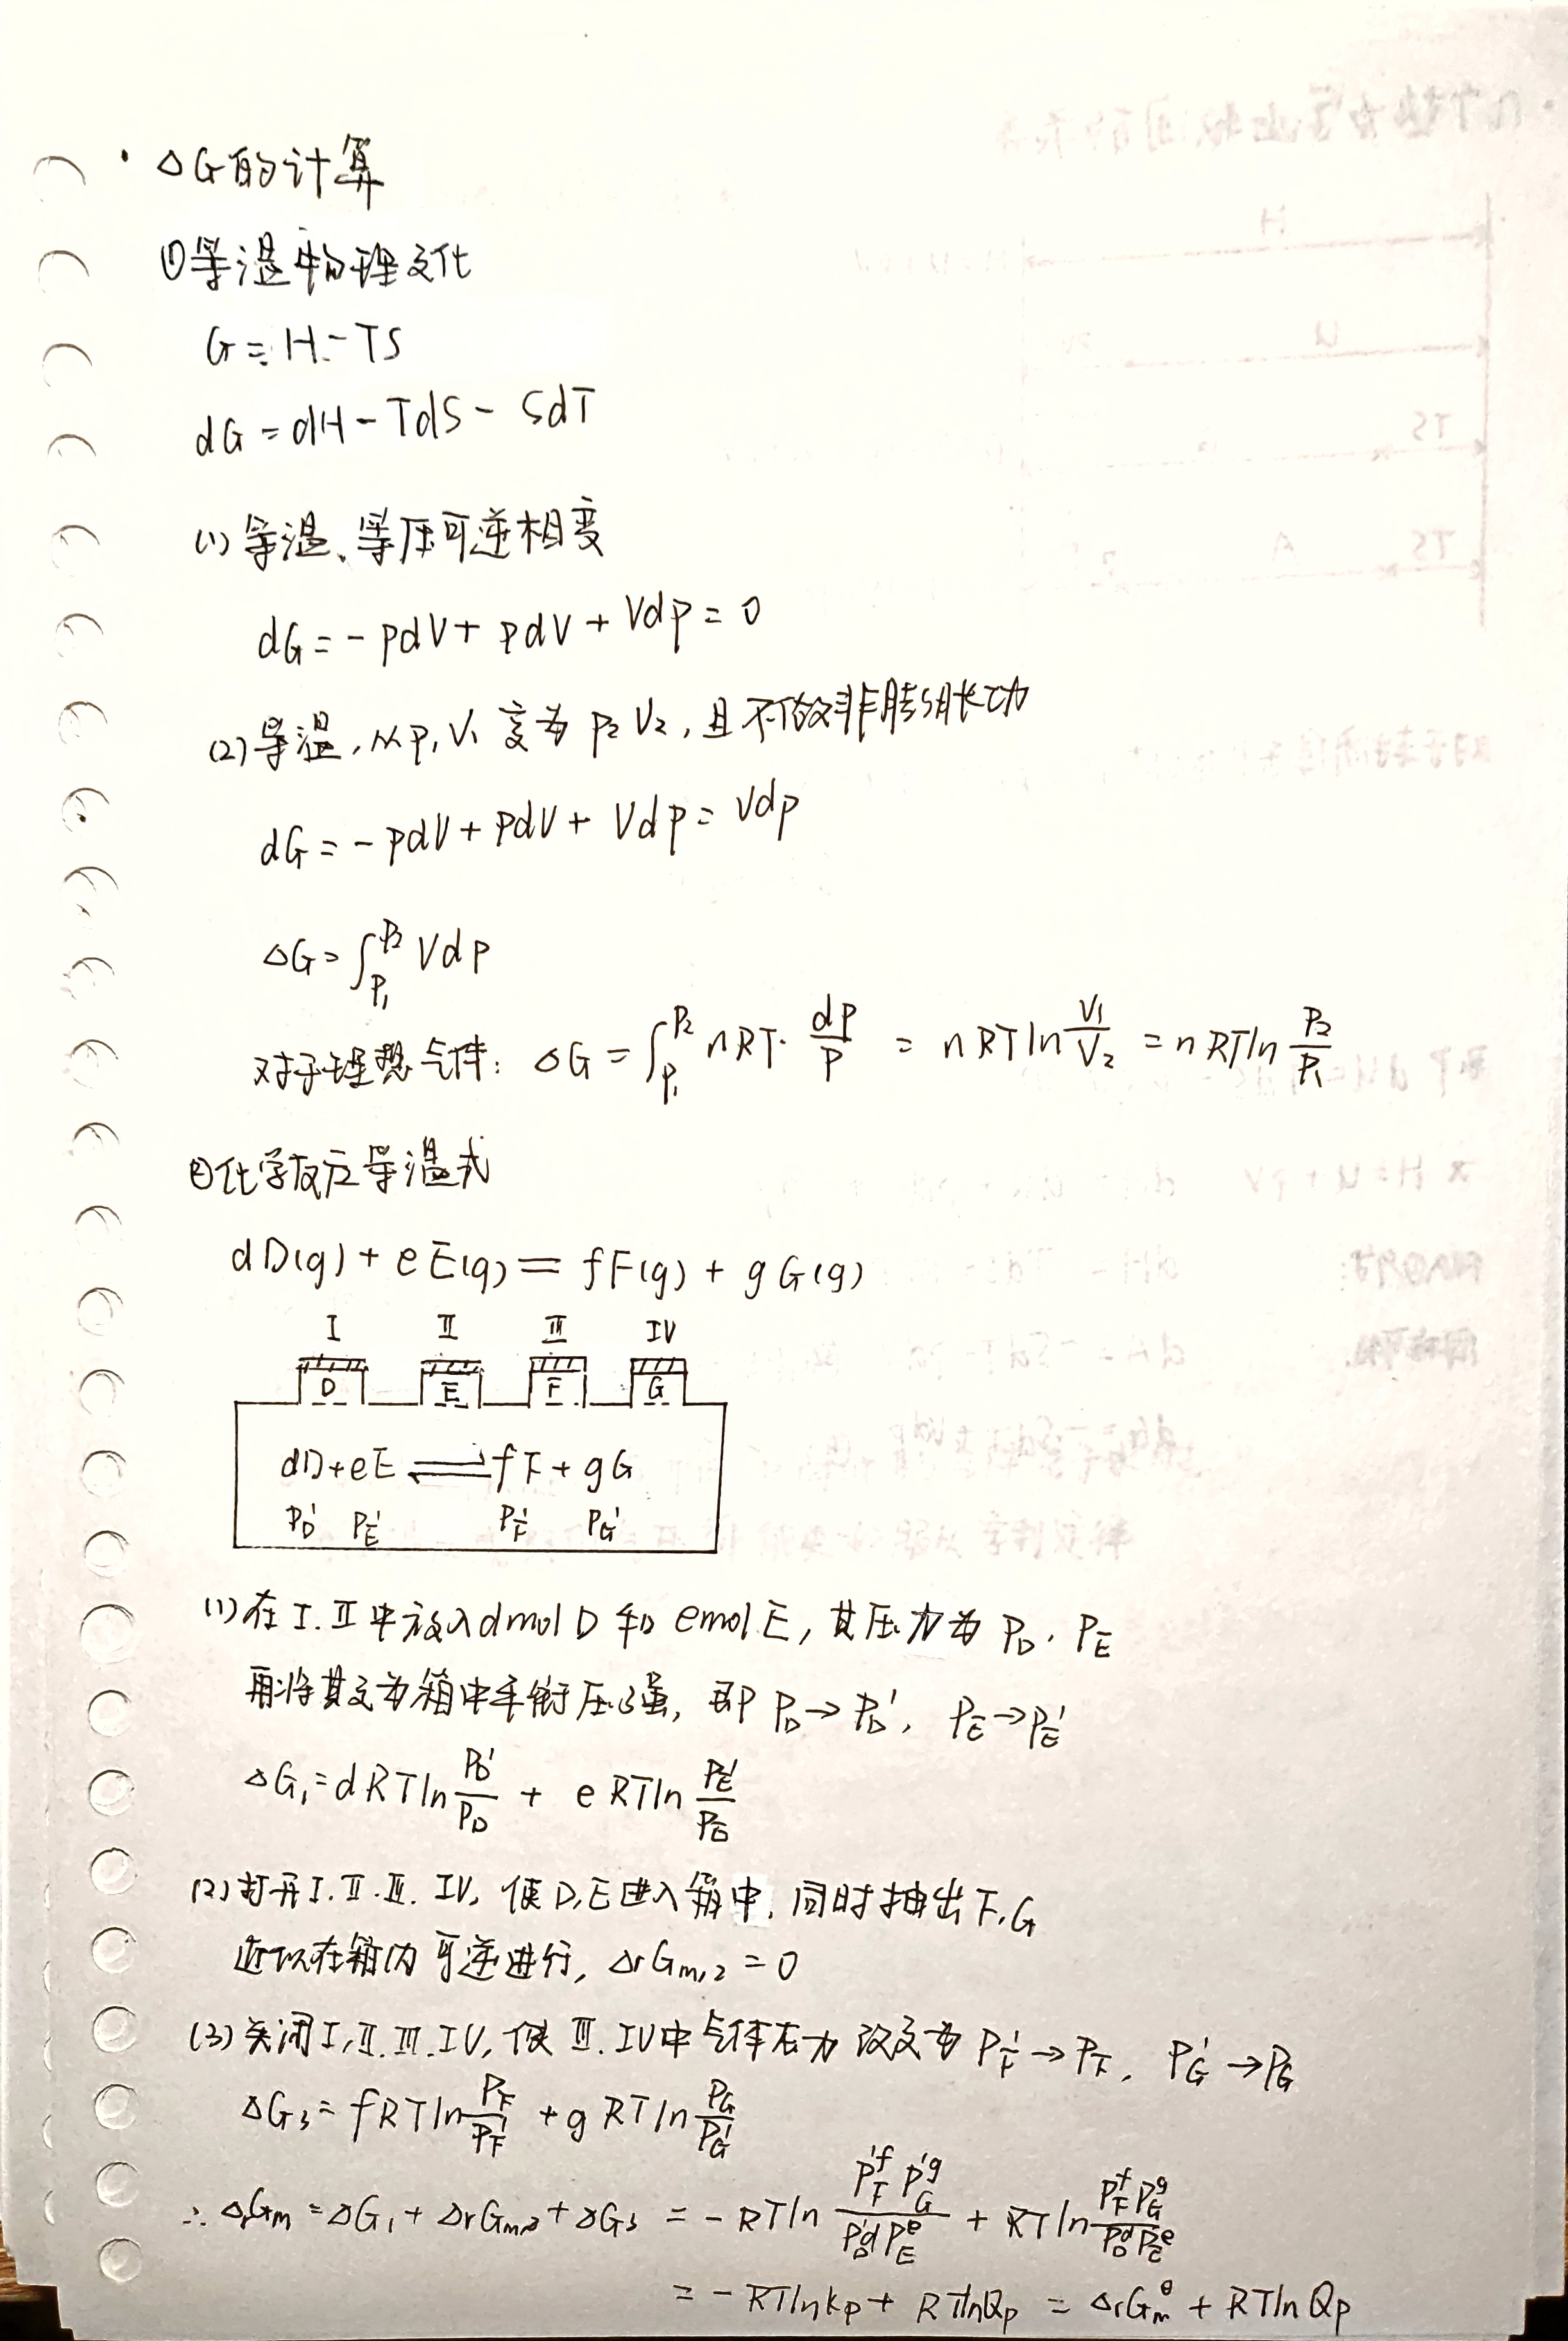 · △G的计算
①等温物理变化
G = H - TS
dG = dH - TdS - SdT
(1) 等温、等压可逆相变
dG = - pdV + pdV + Vdp = 0
(2) 等温,从p₁V₁变为p₂V₂,且不做非膨胀功
dG = - pdV + pdV + Vdp = Vdp
△G = ∫_{P₁}^{P₂} Vdp
对于理想气体: △G = ∫_{P₁}^{P₂} nRT · dP/P = nRTln V₁/V₂ = nRTln P₂/P₁
②化学反应等温式
dD(g) + eE(g) = fF(g) + gG(g)
I II III IV
D E F G
dD+eE ⇌ fF+gG
P_D' P_E' P_F' P_G'
(1) 在I.II中放入dmolD和emolE,其压力为P_D.P_E
再将其变为箱中平衡压强,即P_D→P_D', P_E→P_E'
△G₁ = dRTln P_D'/P_D + eRTln P_E'/P_E
(2) 打开I.II.III.IV, 使D,E进入箱中,同时抽出F,G
近似在箱内可逆进行, △rGm,2 = 0
(3) 关闭I,II.III.IV, 使III.IV中气体压力改变为P_F'→P_F, P_G'→P_G
△G₃ = fRTln P_F/P_F' + gRTln P_G/P_G'
∴ △rGm = △G₁ + △rGm,2 + △G₃ = -RTln P_F'^f P_G'^g / P_D'^d P_E'^e + RTln P_F^f P_G^g / P_D^d P_E^e
= -RTlnkp + RTlnQp = △rGm^θ + RTlnQp